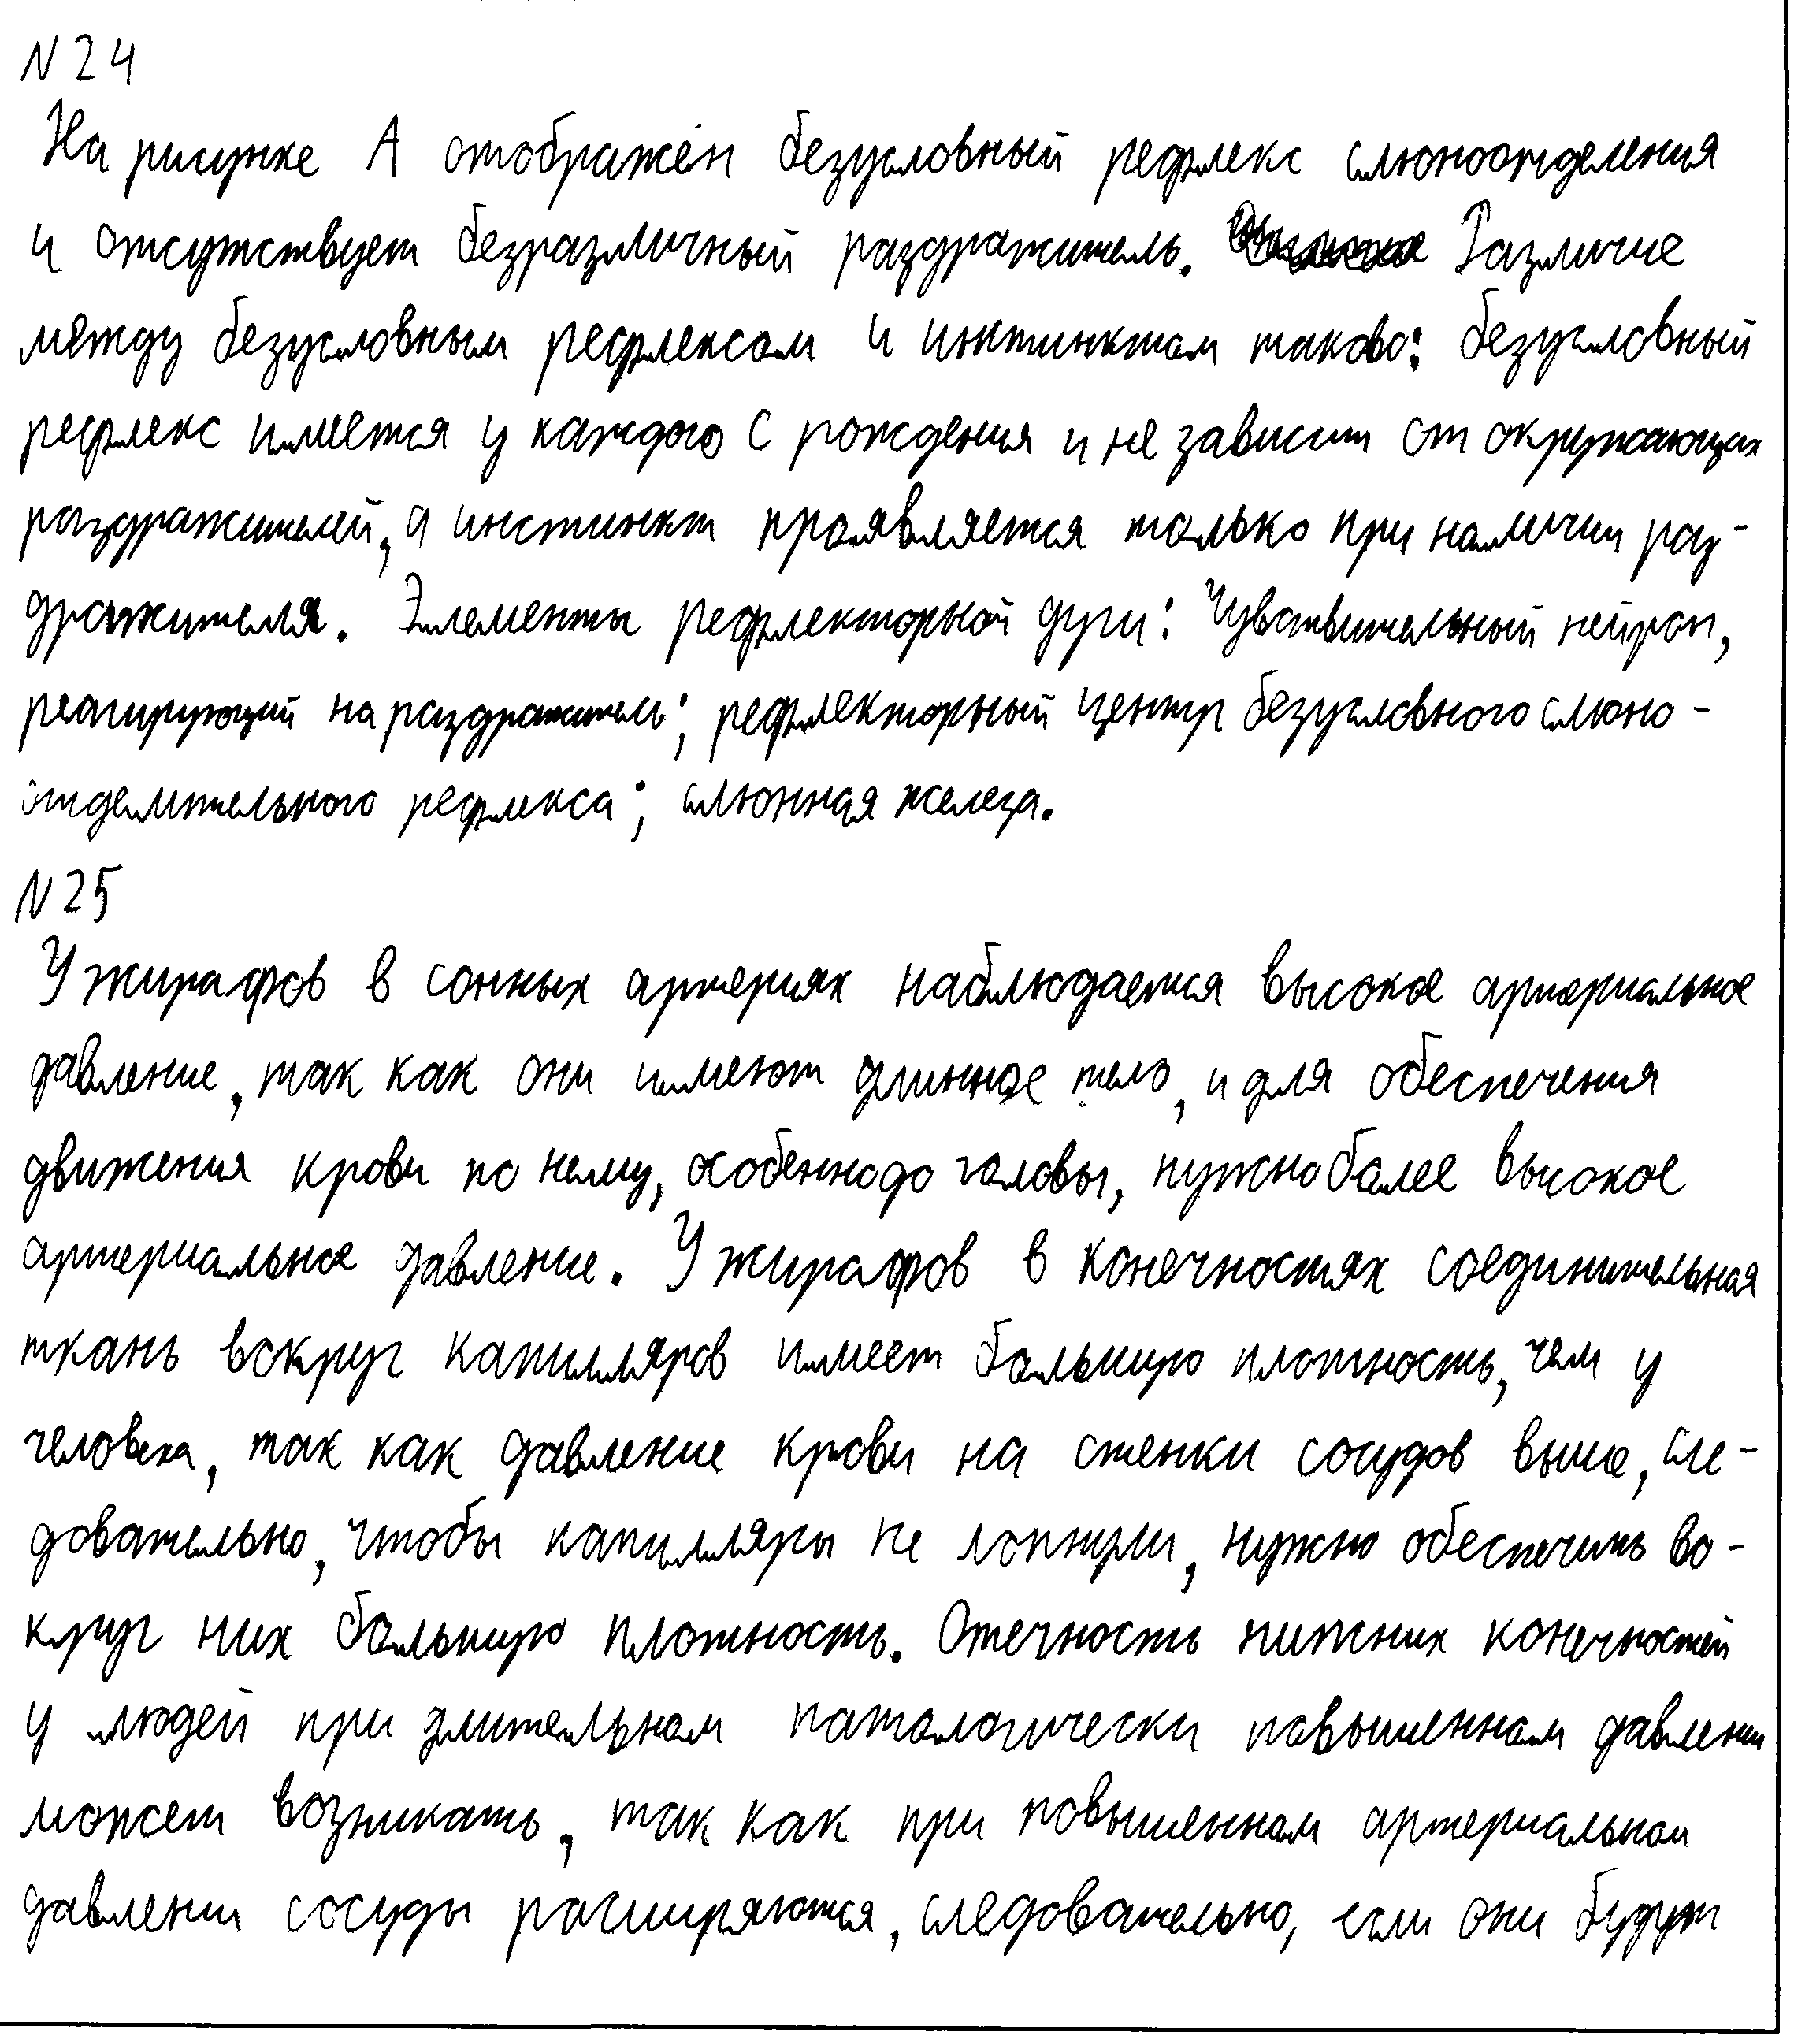 N 24
На рисунке А отображён безусловный рефлекс слюноотделения
и отсутствует безразличный раздражитель. Различие
между безусловным рефлексом и инстинктом таково: безусловный
рефлекс имеется у каждого с рождения и не зависит от окружающих
раздражителей, а инстинкт проявляется только при наличии раз-
дражителя. Элементы рефлекторной дуги: Чувствительный нейрон,
реагирующий на раздражитель; рефлекторный центр безусловного слюно-
отделительного рефлекса; слюнная железа.
N 25
У жирафов в сонных артериях наблюдается высокое артериальное
давление, так как они имеют длинное тело, и для обеспечения
движения крови по нему, особенно до головы, нужно более высокое
артериальное давление. У жирафов в конечностях соединительная
ткань вокруг капилляров имеет большую плотность, чем у
человека, так как давление крови на стенки сосудов выше, сле-
довательно, чтобы капилляры не лопнули, нужно обеспечить во-
круг них большую плотность. Отечность нижних конечностей
у людей при длительном патологически повышенном давлении
может возникать, так как при повышенном артериальном
давлении сосуды расширяются, следовательно, если они будут